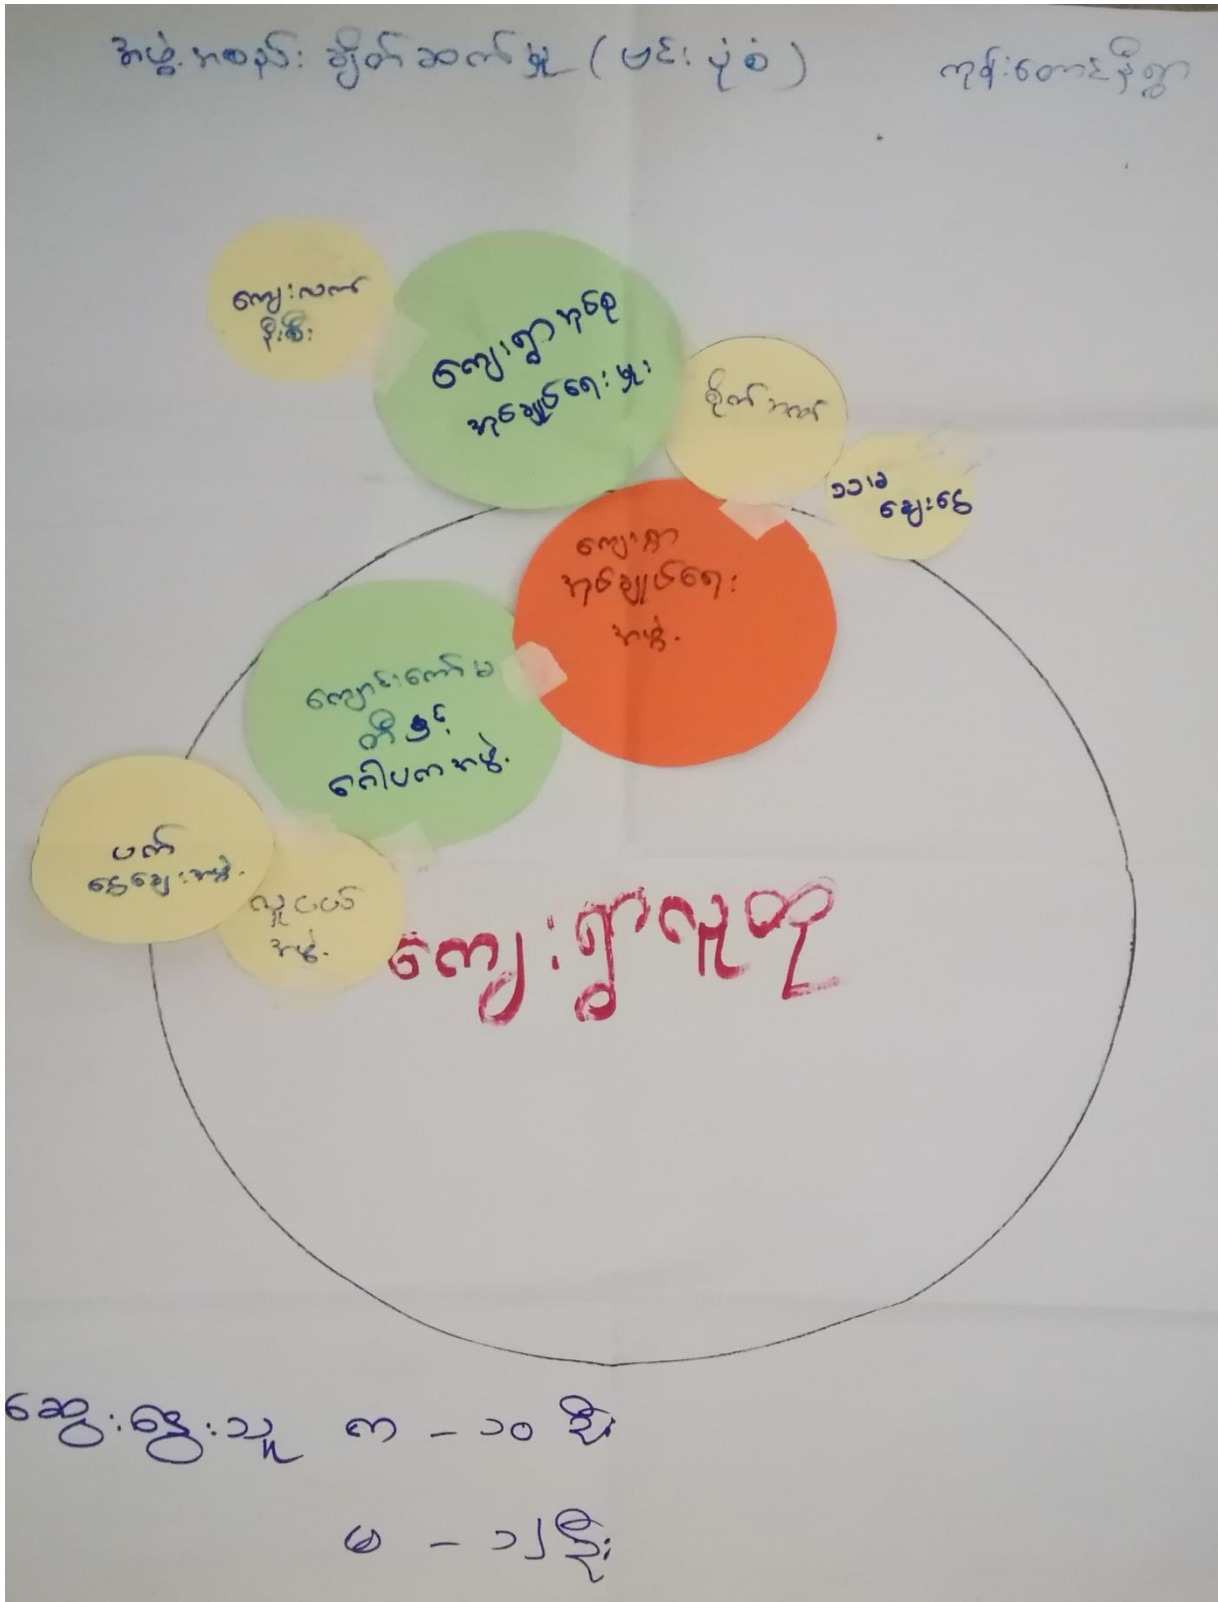 အဖွဲ့အစည်း ချိတ်ဆက်မှု (ဗင်းပုံစံ)
ကုန်းတောင်နီရွာ
ကျေးလက်
ဦးစီး
ကျေးရွာအုပ်စု
အုပ်ချုပ်ရေးမှူး
စိုက်ဘဏ်
ချေးငွေ
ကျေးရွာ
အုပ်ချုပ်ရေး
အဖွဲ့
ကျောင်းကော်မ
တီနှင့်
ဂေါပကအဖွဲ့
ပက်
ငွေချေးအဖွဲ့
လူငယ်
အဖွဲ့
ကျေးရွာလူထု
ဆွေးနွေးသူ က - ၁၀ ဦး
မ - ၁၂ ဦး